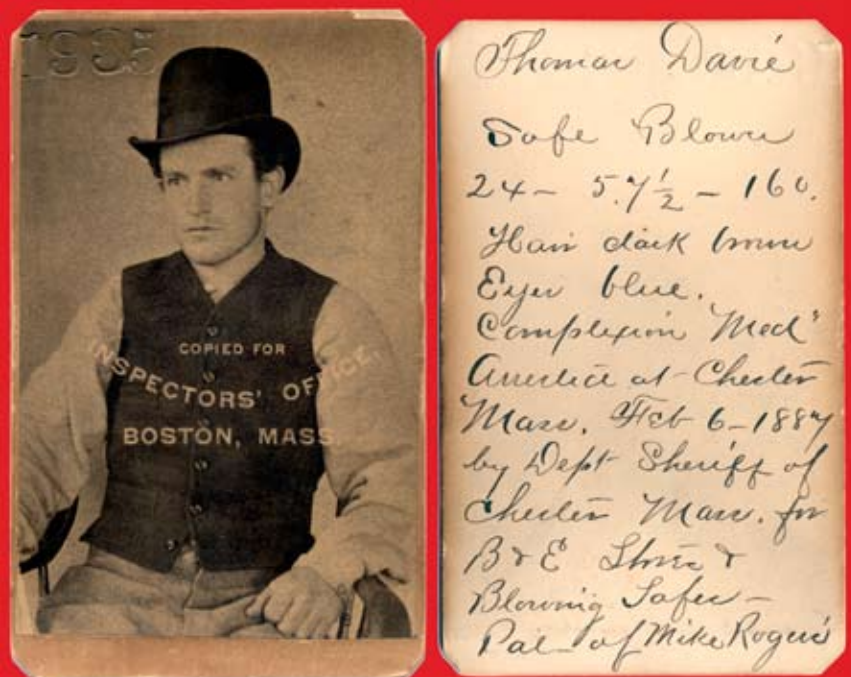 1935
COPIED FOR
INSPECTORS' OFFICE,
BOSTON, MASS.
Thomas Davis
Safe Blower
24 - 5.7½ - 160.
Hair dark brown
Eyes blue.
Complexion "Med"
Arrested at Chester
Mass. Feb 6 - 1887
by Dept Sheriff of
Chester Mass. for
B & E Stores &
Blowing Safes -
Pal of Mike Rogers